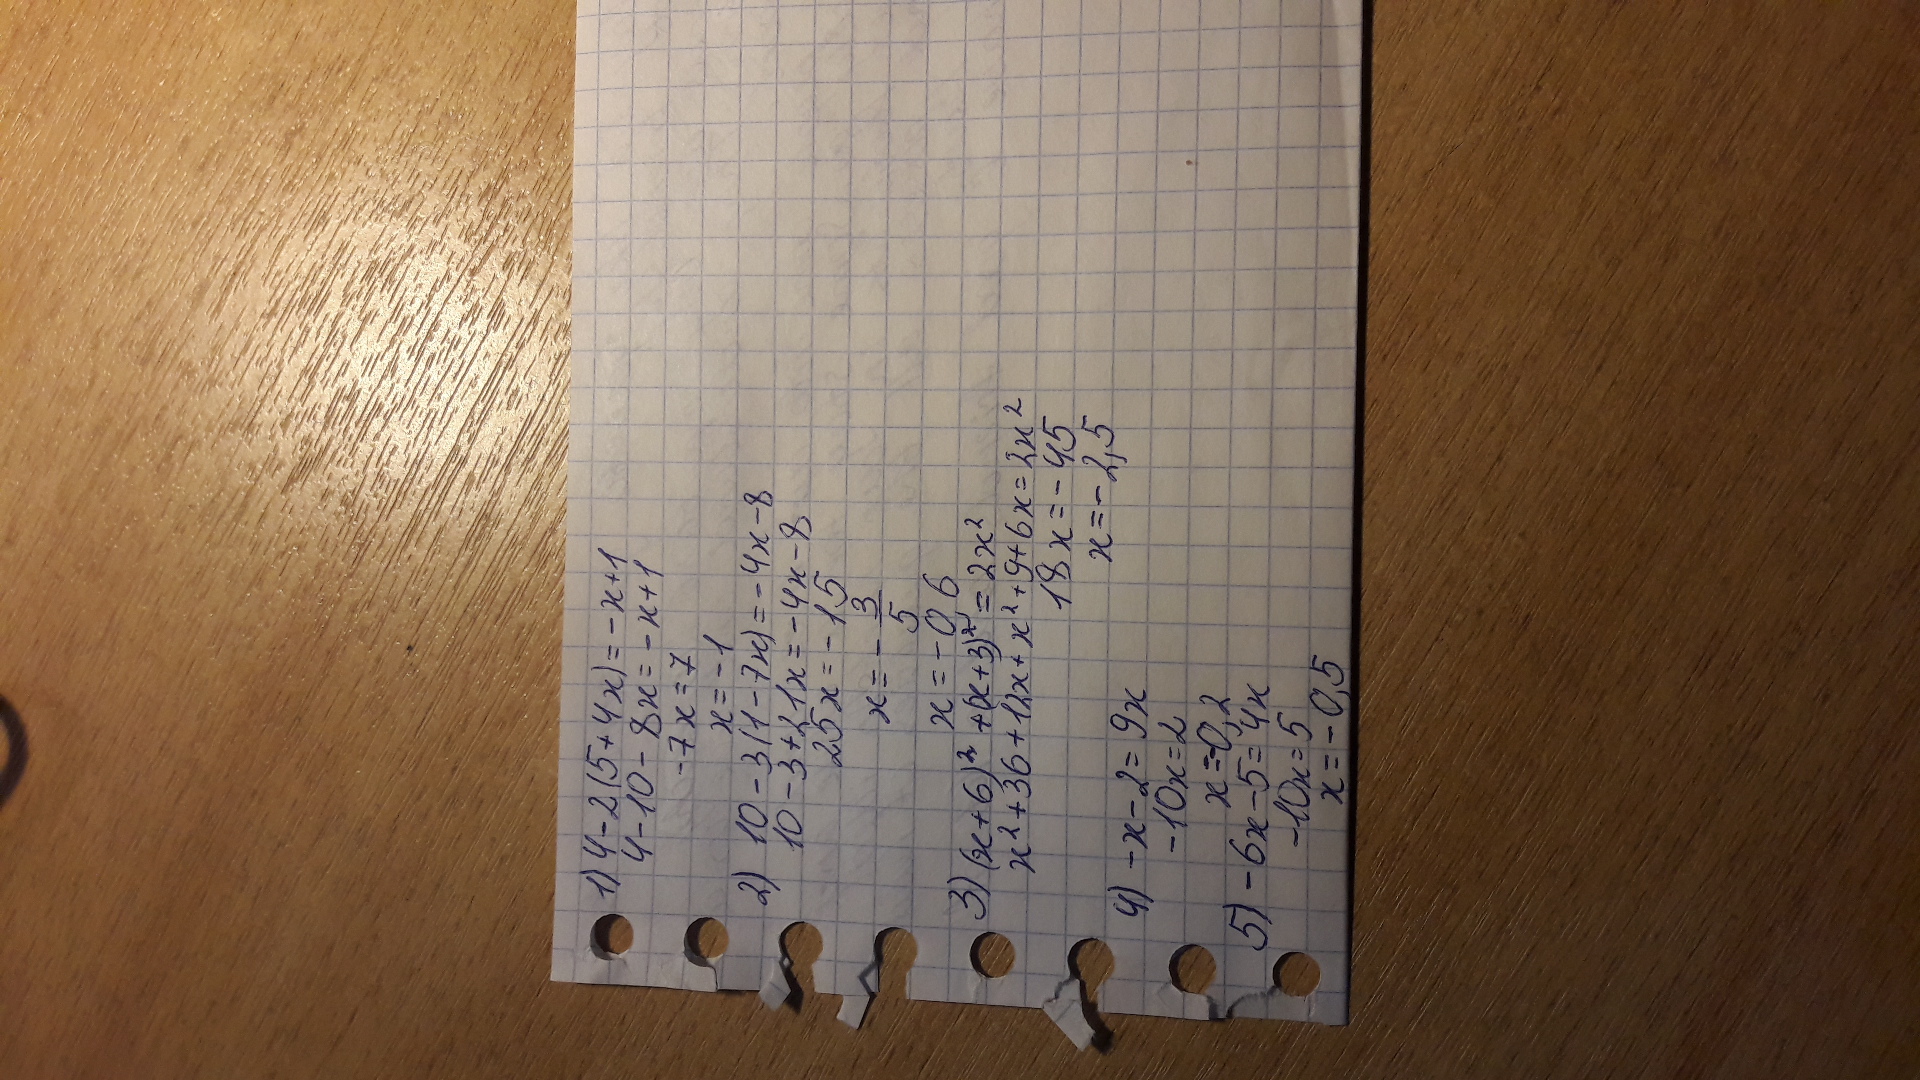 1) 4-2(5+4x)=-x+1
4-10-8x=-x+1
-7x=7
x=-1
2) 10-3(1-7x)=-4x-8
10-3+21x=-4x-8
25x=-15
x=-3/5
x=-0,6
3) (x+6)²+(x+3)²=2x²
x²+36+12x+x²+9+6x=2x²
18x=-45
x=-2,5
4) -x-2=9x
-10x=2
x=-0,2
5) -6x-5=4x
-10x=5
x=-0,5